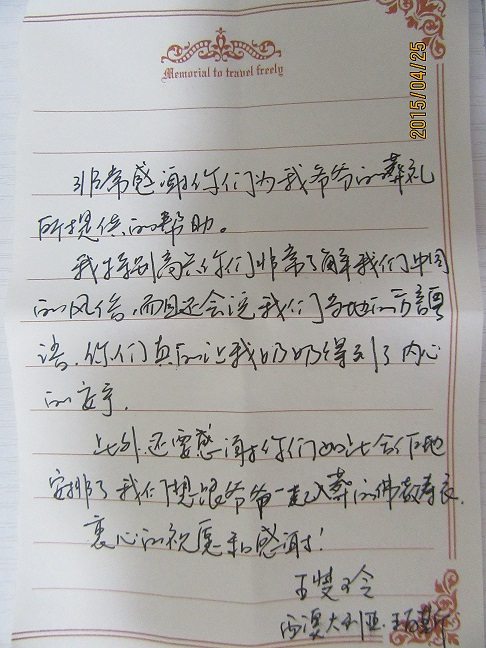 Memorial to travel freely
2015/04/25
非常感谢你们为我爷爷的葬礼
所提供的帮助。
我特别高兴你们非常了解我们中国
的风俗,而且还会说我们当地的方言粤
语.你们真的让我奶奶得到了内心
的安宁.
此外.还要感谢你们如此合作地
安排了我们想跟爷爷一起入葬的佛教寿衣.
衷心的祝愿和感谢!
王
西澳大利亚.